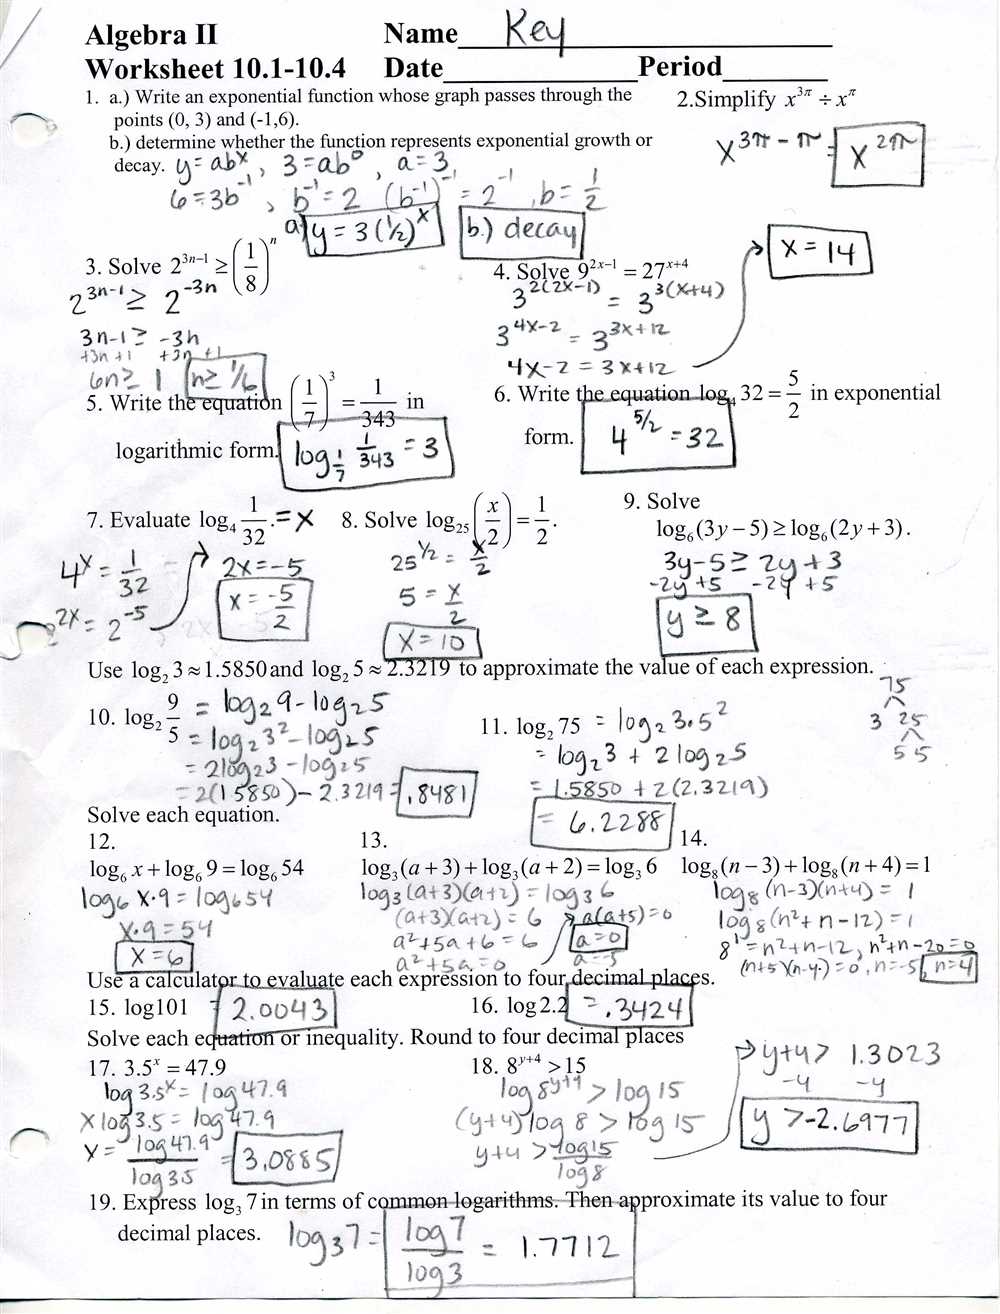 Algebra II Name Key
Worksheet 10.1-10.4 Date Period
1. a.) Write an exponential function whose graph passes through the
points (0, 3) and (-1,6).
b.) determine whether the function represents exponential growth or
decay. y = abˣ, 3 = ab⁰, a = 3
6 = 3b⁻¹, b⁻¹ = 2 (b⁻¹)⁻¹ = 2⁻¹, b = 1/2
a) y = 3(1/2)ˣ b.) decay
2.Simplify x^{3π} ÷ x^π
x^{3π - π} = x^{2π}
3. Solve 2^{3n-1} ≥ (1/8)^n
2^{3n-1} ≥ 2^{-3n}
3n-1 ≥ -3n
+3n +1 +3n +1
6n ≥ 1 n ≥ 1/6
4. Solve 9^{2x-1} = 27^{x+4}
3^{2(2x-1)} = 3^{3(x+4)}
3^{4x-2} = 3^{3x+12}
4x-2 = 3x+12
x = 14
5. Write the equation (1/7)^3 = 1/343 in
logarithmic form. log_{1/7} 1/343 = 3
6. Write the equation log₄ 32 = 5/2 in exponential
form. 4^{5/2} = 32
7. Evaluate log₄ 1/32. = x
4ˣ = 1/32
2^{2x} = 2^{-5}
2x = -5
x = -5/2
8. Solve log₂₅(x/2) = 1/2.
25^{1/2} = x/2
5 = x/2
x = 10
9. Solve
log₆(3y-5) ≥ log₆(2y+3).
3y-5 ≥ 2y+3
-2y +5 -2y +5
y ≥ 8
Use log₂ 3 ≈ 1.5850 and log₂ 5 ≈ 2.3219 to approximate the value of each expression.
10. log₂ 9/5 = log₂9 - log₂5
= log₂3² - log₂5
= 2log₂3 - log₂5
= 2(1.5850) - 2.3219 = .8481
11. log₂ 75 = log₂ 3·5²
= log₂3 + 2 log₂5
= 1.5850 + 2(2.3219)
= 6.2288
75
3 25
5 5
Solve each equation.
12.
log₆ x + log₆ 9 = log₆ 54
log₆ x·9 = log₆54
x·9 = 54
x = 6
13.
log₃(a+3) + log₃(a+2) = log₃ 6
log₃(a+3)(a+2) = log₃6
(a+3)(a+2) = 6
a²+5a+6 = 6
a²+5a = 0
a(a+5) = 0
a = 0
a = -5
14.
log₈(n-3) + log₈(n+4) = 1
log₈(n-3)(n+4) = 1
log₈(n²+n-12) = 1
8¹ = n²+n-12, n²+n-20 = 0
(n+5)(n-4) = 0, n = -5, n = 4
Use a calculator to evaluate each expression to four decimal places.
15. log101 = 2.0043
16. log2.2 = .3424
Solve each equation or inequality. Round to four decimal places
17. 3.5ˣ = 47.9
log 3.5ˣ = log 47.9
x log 3.5 = log 47.9
x = log 47.9/log 3.5 = 3.0885
18. 8^{y+4} > 15
log 8^{y+4} > log 15
(y+4) log 8 > log 15
y+4 > log 15/log 8
y+4 > 1.3023
-4 -4
y > -2.6977
19. Express log₃ 7 in terms of common logarithms. Then approximate its value to four
decimal places. log₃7 = log 7/log 3 = 1.7712